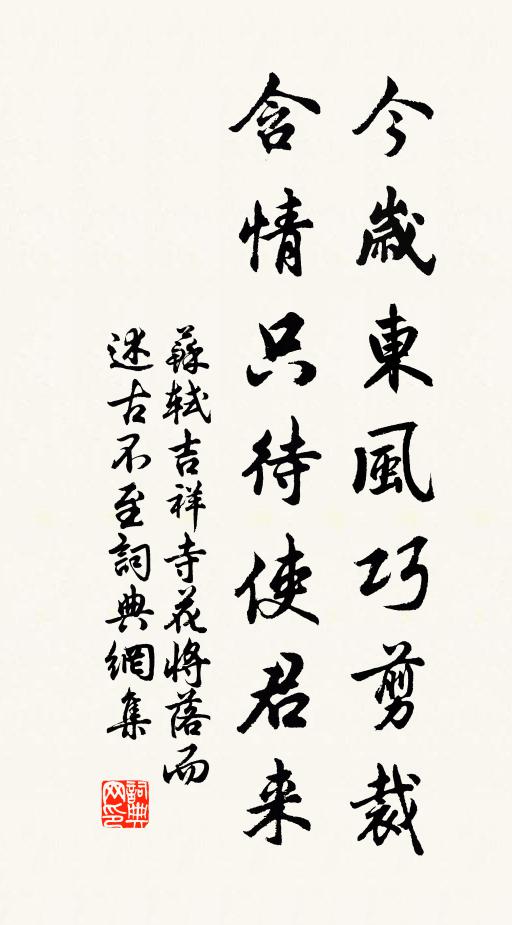 今歲東風巧剪裁
含情只待使君來
蘇軾吉祥寺花將落而
述古不至詞典網集
詞典网印